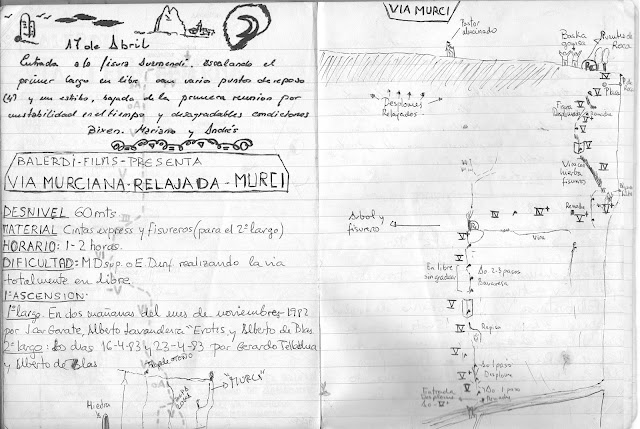 17 de Abril
Entrada a la fisura Suemendi. escalando el
primer largo en libre con varios puntos de reposo
(4) y un estribo, bajada de la primera reunion por
inestabilidad en el tiempo y desagradables condiciones
Dixen. Mariano y Andrés
BALERDI-FILMS-PRESENTA
VIA MURCIANA-RELAJADA-MURCI
DESNIVEL 60 mts
MATERIAL Cintas express y fisureros (para el 2º largo)
HORARIO: 1-2 horas.
DIFICULTAD: MD sup. o E.D inf realizando la via
totalmente en libre
1ª ASCENSION:
1º largo. En dos mañanas del mes de noviembre 1982
por Garate, Alberto "Erotes y Alberto de Blas
2º largo: Los dias 16-4-83 y 23-4-83 por Gerardo
y Alberto de Blas
"MURCI"
Hiedra
VIA MURCI
Pastor
alucinado
Puentes de
Roca
Desplomes
Relajados
Placa
Fisura
Vira con
hierba
fisurero
Arbol y
fisurero
R
Vira
En libre
sin grado
Ao 2-3 pasos
Bavaresa
Repisa
Ao 1 paso
Desplome
Entrada
Desplome
Ao 1 paso